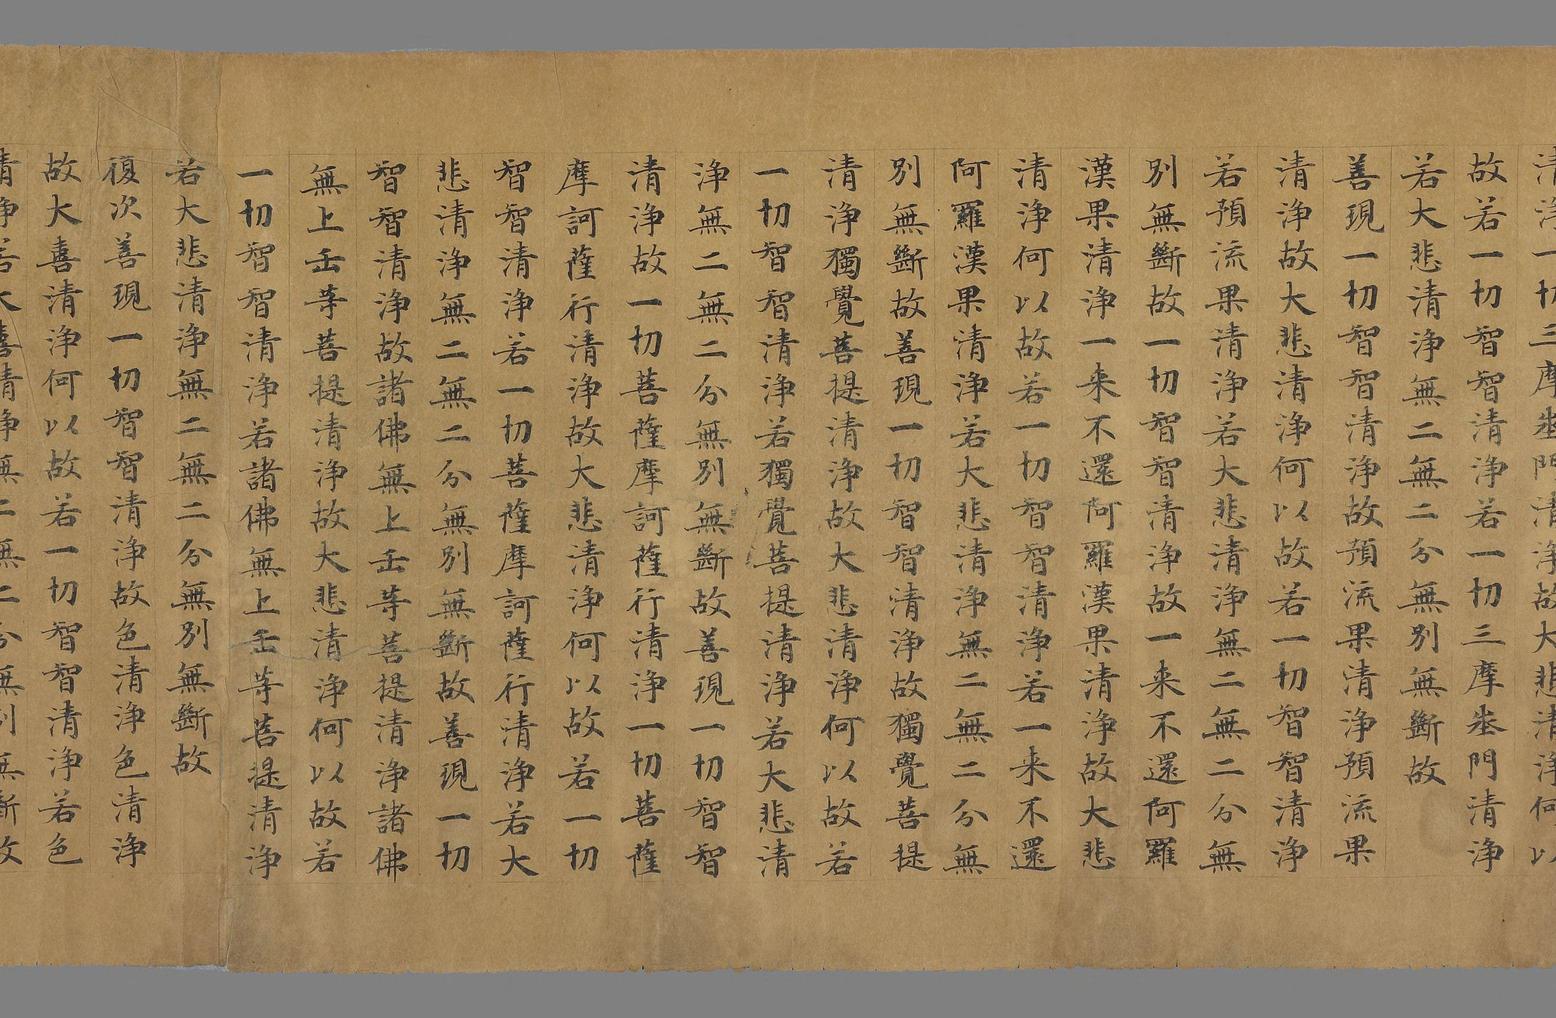 清淨一切三摩地門清淨故大悲清淨何以
故若一切智智清淨若一切三摩地門清淨
若大悲清淨無二無二分無別無斷故
善現一切智智清淨故預流果清淨預流果
清淨故大悲清淨何以故若一切智智清淨
若預流果清淨若大悲清淨無二無二分無
別無斷故一切智智清淨故一来不還阿羅
漢果清淨一来不還阿羅漢果清淨故大悲
清淨何以故若一切智智清淨若一来不還
阿羅漢果清淨若大悲清淨無二無二分無
別無斷故善現一切智智清淨故獨覺菩提
清淨獨覺菩提清淨故大悲清淨何以故若
一切智智清淨若獨覺菩提清淨若大悲清
淨無二無二分無別無斷故善現一切智智
清淨故一切菩薩摩訶薩行清淨一切菩薩
摩訶薩行清淨故大悲清淨何以故若一切
智智清淨若一切菩薩摩訶薩行清淨若大
悲清淨無二無二分無別無斷故善現一切
智智清淨故諸佛無上正等菩提清淨諸佛
無上正等菩提清淨故大悲清淨何以故若
一切智智清淨若諸佛無上正等菩提清淨
若大悲清淨無二無二分無別無斷故
復次善現一切智智清淨故色清淨色清淨
故大喜清淨何以故若一切智智清淨若色
清淨若大喜清淨無二無二分無別無斷故